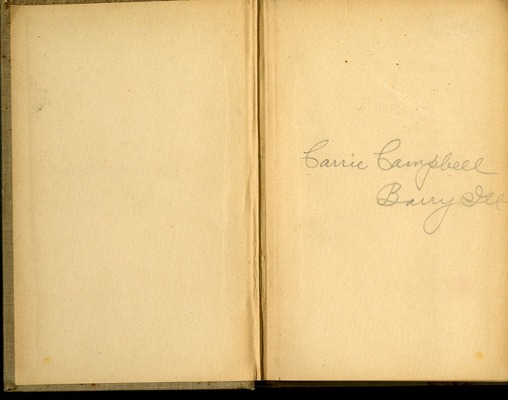 Carrie Campbell
Barry Ill